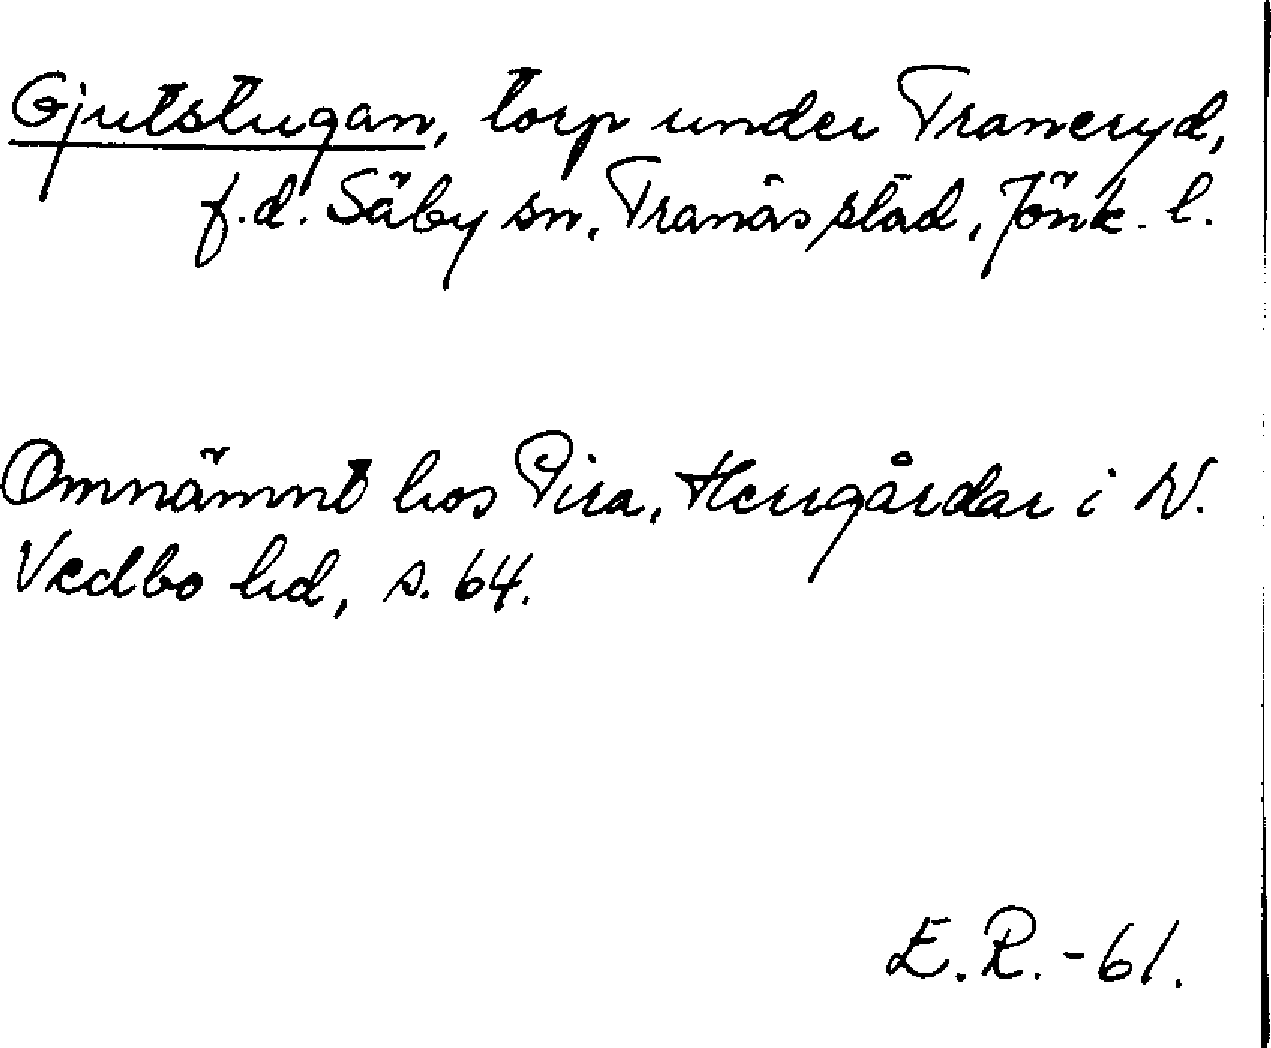 Gjutstugan, torp under Traneryd,
f.d. Säby sn, Tranås stad, Jönk. l.
Omnämnt hos Pira, Herrgårdar i N.
Vedbo hd, s. 64.
E.R. -61.